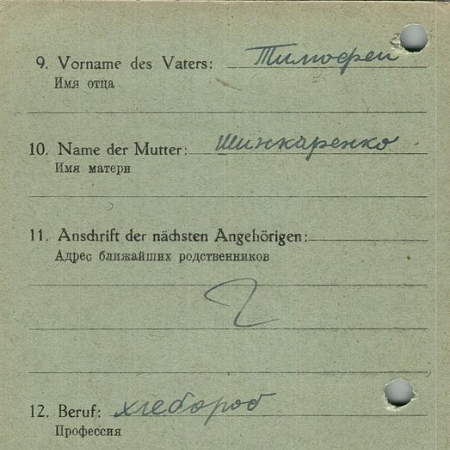 9. Vorname des Vaters: Тимофей
Имя отца
10. Name der Mutter: Шинкаренко
Имя матери
11. Anschrift der nächsten Angehörigen:
Адрес ближайших родственников
12. Beruf: хлебороб
Профессия